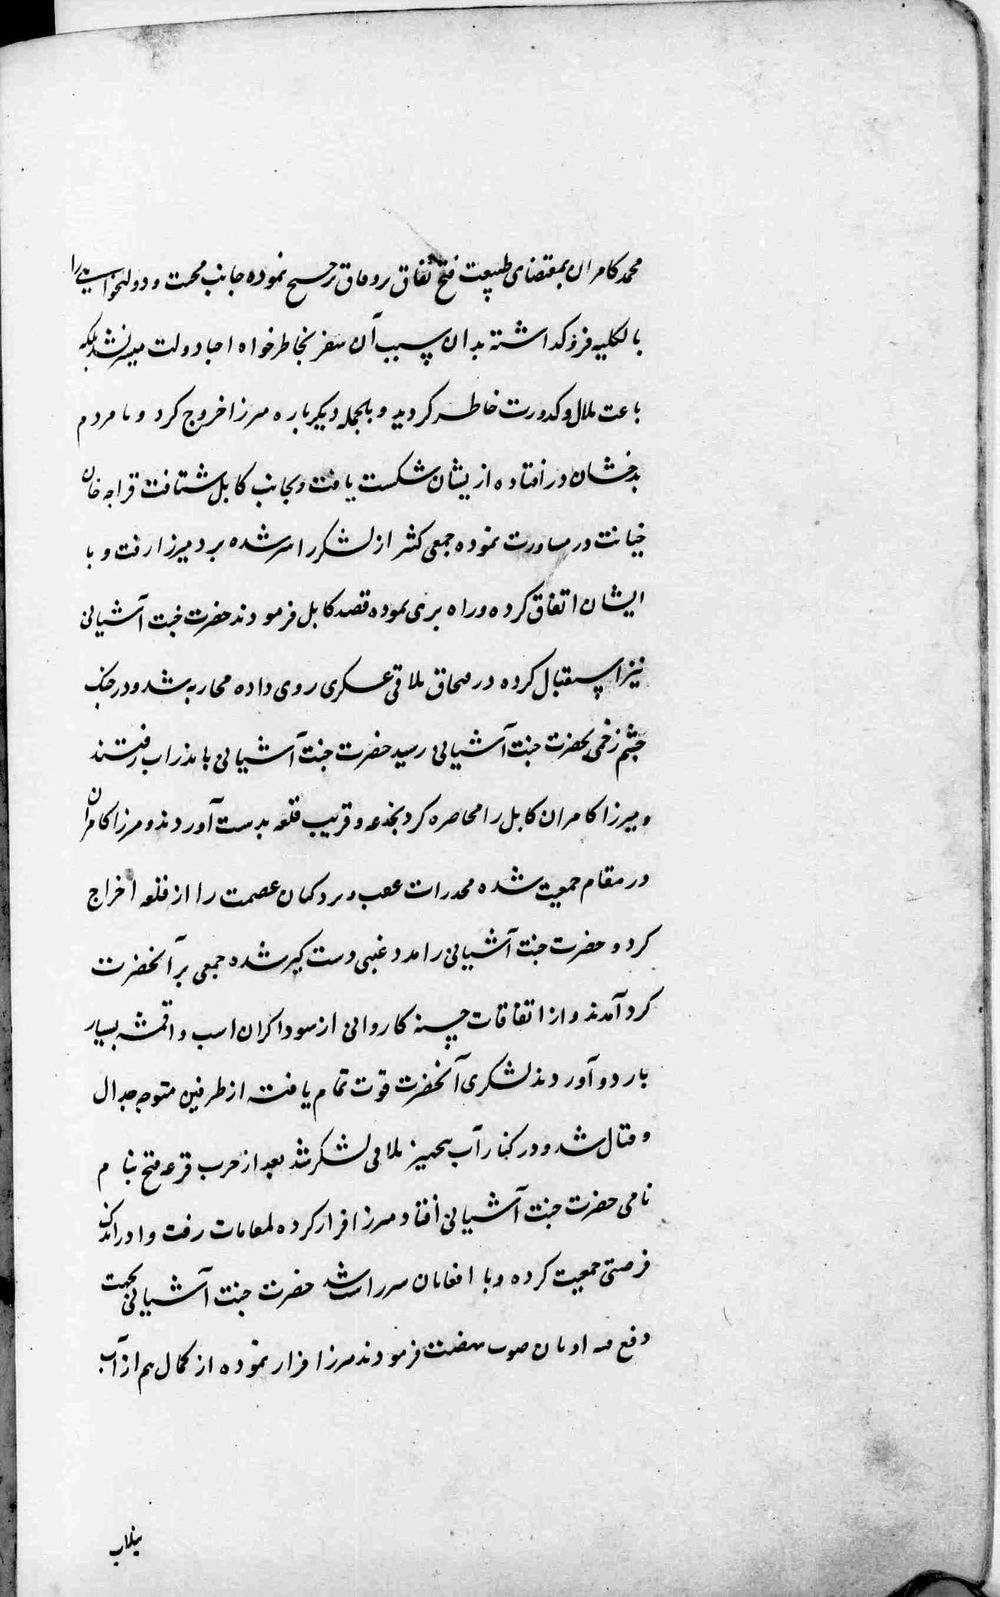 محمد کامران بمقتضای طبیعت فتح نفاق بر وفاق ترجیح نموده جانب محبت و دولتخواهی را
بالکلیه فرو گذاشته بدان سبب آن سفر بخاطر خواه احبا دولت میسر نشد بلکه
باعث ملال و کدورت خاطر کردید و بالجمله دیکر باره مرزا خروج کرد و با مردم
بدخشان در افتاده ازیشان شکست یافت و بجانب کابل شتافت قراجه خان
خیانت در مساورت نموده جمعی کثیر از لشکر را سر شده برد میرزا رفت و با
ایشان اتفاق کرده و راه بری نموده قصد کابل فرمودند حضرت جنت آشیانی
نیز استقبال کرده در ملاقی عسکری روی داده محاربه شد و در جنک
چشم زخمی بحضرت جنت آشیانی رسید حضرت جنت آشیانی باندراب رفتند
و میرزا کامران کابل را محاصره کرد بخدعه و فریب قلعه بدست آوردند و مرزا کامران
در مقام جمعیت شده مخدرات عصمت را از قلعه اخراج
کرد و حضرت جنت آشیانی را مدد غیبی دست کیر شده جمعی بر آنحضرت
کرد آمدند و از اتفاقات حسنه کاروانی از سوداکران اسب و اقمشه بسیار
باردو آوردند لشکری آنحضرت قوت تمام یافت از طرفین متوجه جدال
و قتال شد و در کنار آب ملاقی لشکر شد بعد از حرب قرعه فتح بنام
نامی حضرت جنت آشیانی افتاد مرزا فرار کرده لمغانات رفت و اندک
فرصتی جمعیت کرده و با افغانان شد حضرت جنت آشیانی بجهت
دفع او بان صوب نهضت فرمودند مرزا فرار نموده از کمال هم از آب
نیلاب